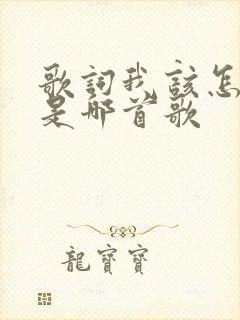 歌詞我該怎
是那首歌
龍寶寶